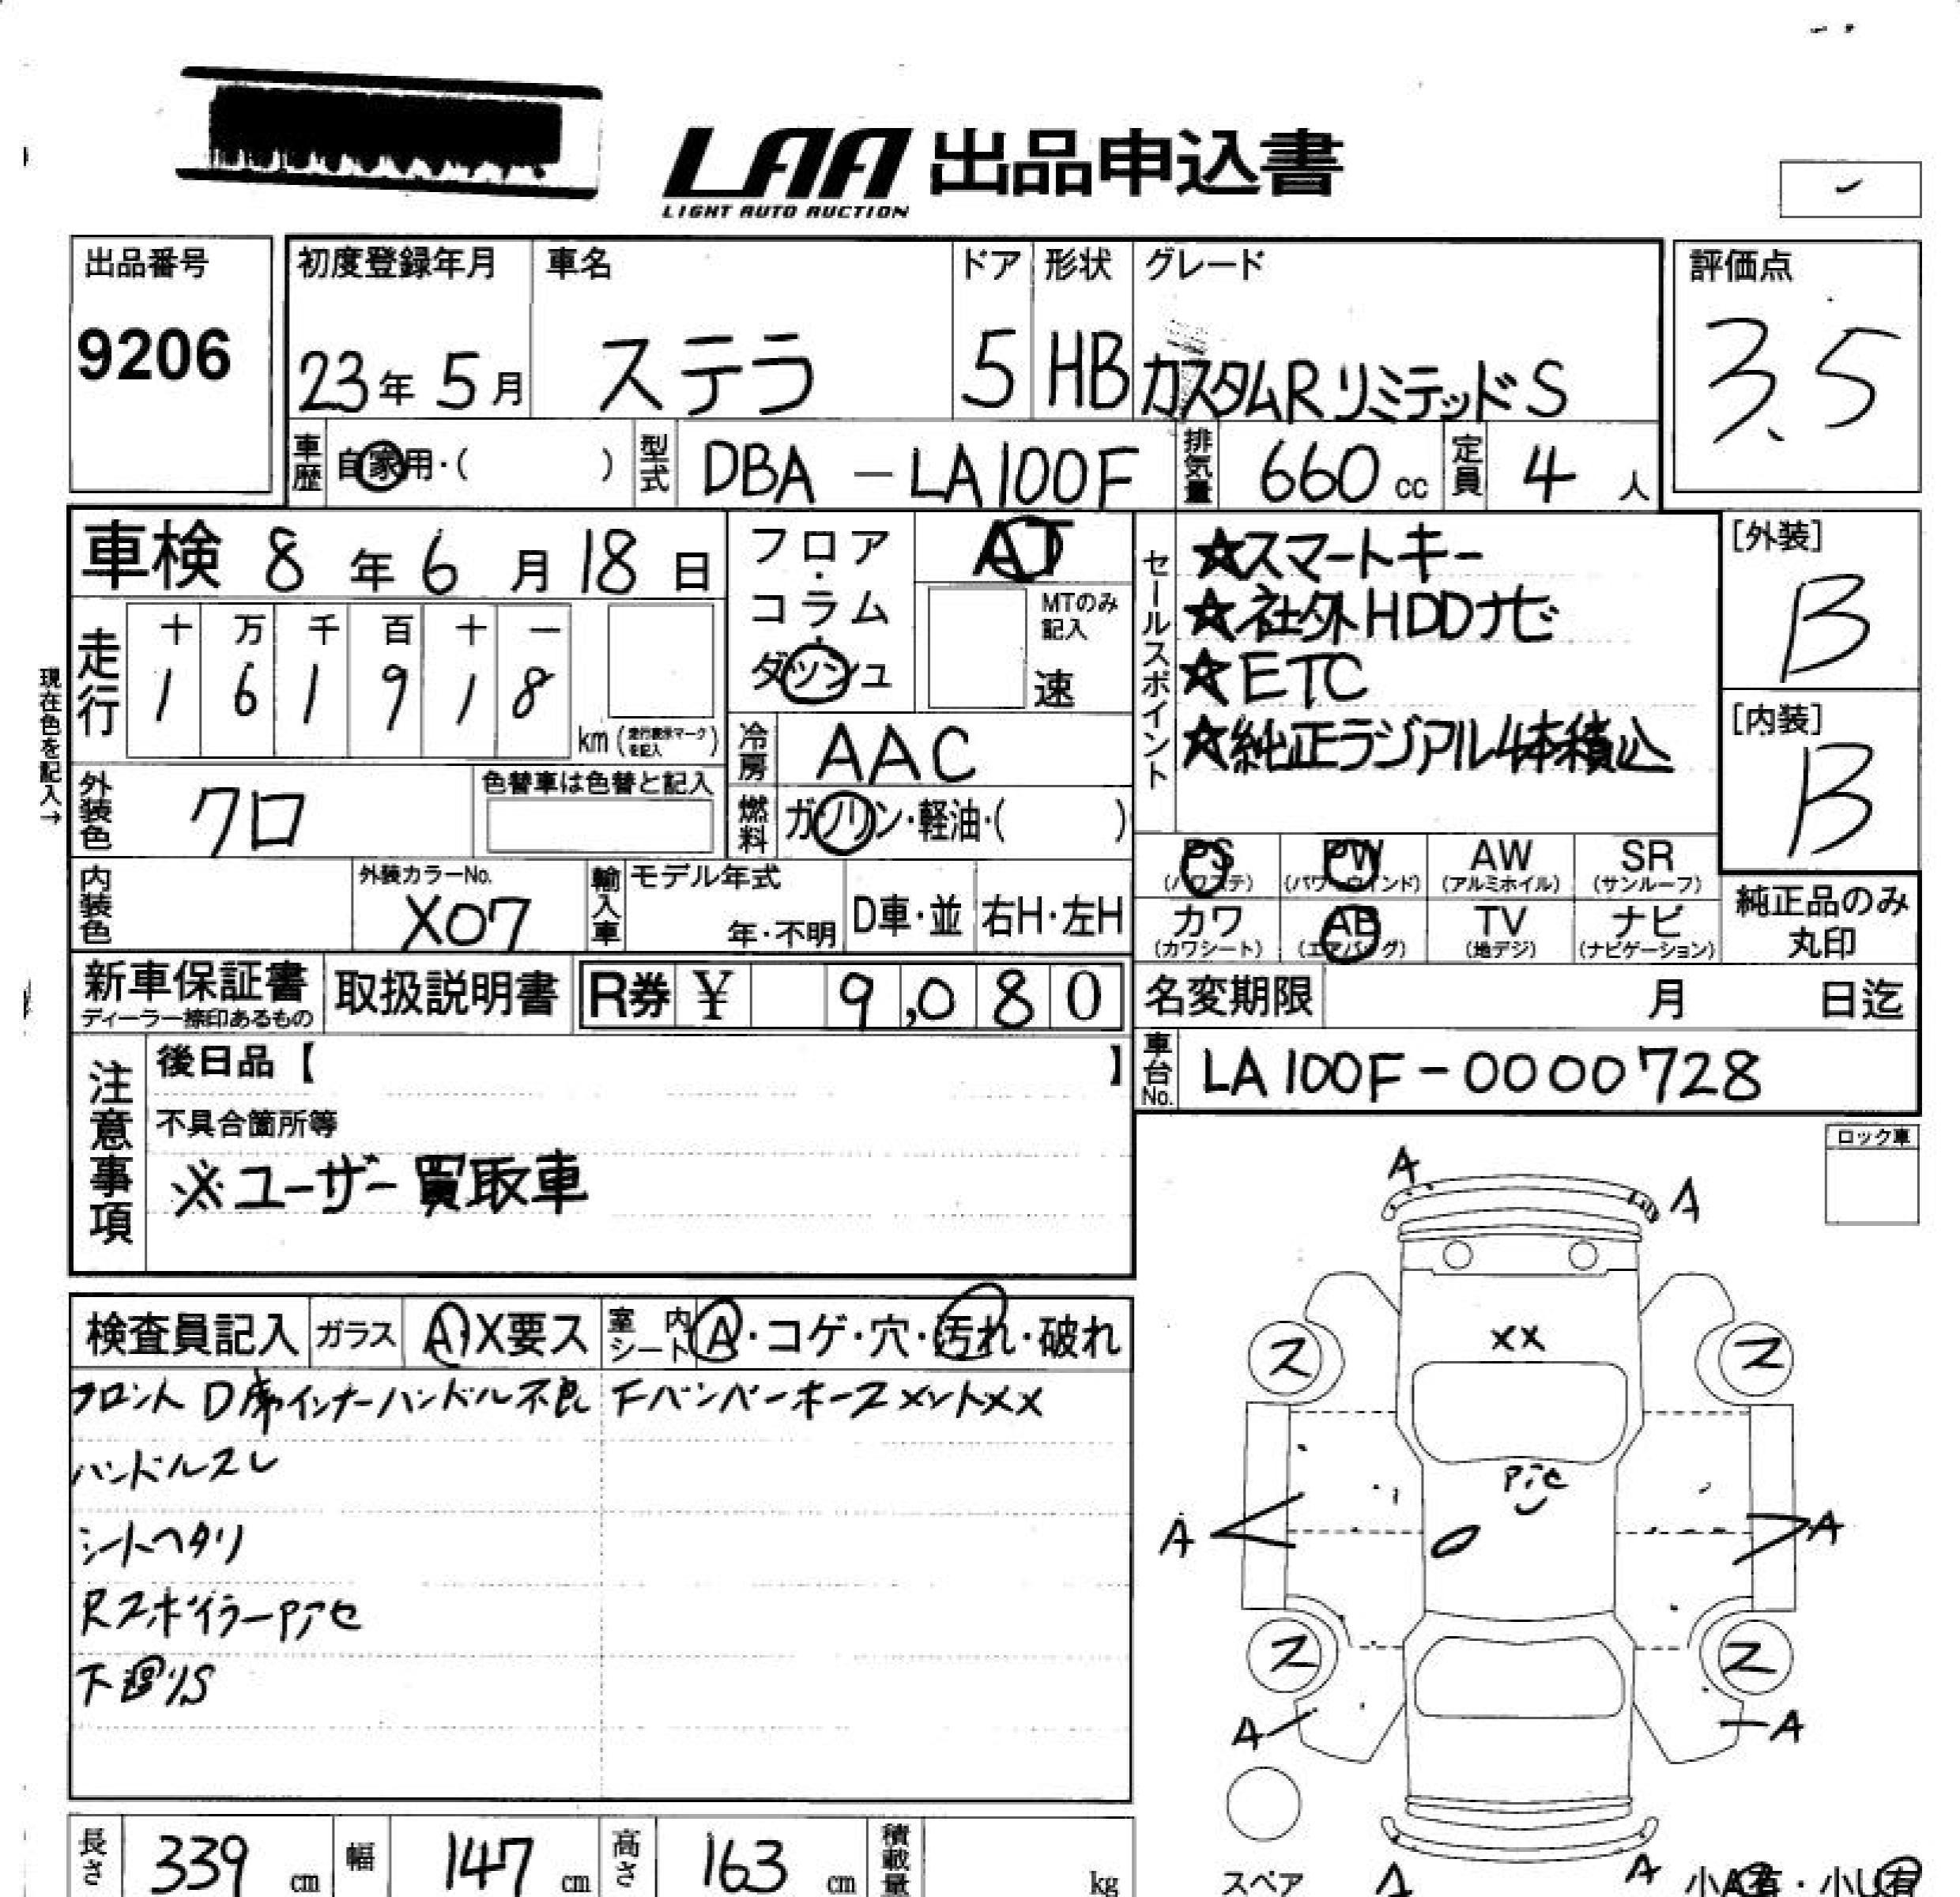 LAA 出品申込書
LIGHT AUTO AUCTION
出品番号 9206
初度登録年月 23年 5月
車名 ステラ
ドア 5
形状 HB
グレード カスタムRリミテッドS
評価点 3.5
車歴 自家用・( )
型式 DBA-LA100F
排気量 660 cc
定員 4 人
車検 8年 6月 18日
フロア・コラム・ダッシュ
AT
MTのみ記入 速
現在色を記入→
走行 十 万 千 百 十 一
1 6 1 9 1 8 km (走行表示マークを記入)
冷房 AAC
燃料 ガソリン・軽油・( )
外装色 クロ
色替車は色替と記入
内装色
外装カラーNo. X07
輸入車 モデル年式 年・不明
D車・並 右H・左H
セールスポイント
☆スマートキー
☆社外HDDナビ
☆ETC
☆純正ラジアル4本積込
[外装] B
[内装] B
PS (パワステ) PW (パワーウインド) AW (アルミホイル) SR (サンルーフ)
カワ (カワシート) AB (エアバッグ) TV (地デジ) ナビ (ナビゲーション)
純正品のみ丸印
新車保証書 ディーラー捺印あるもの
取扱説明書
R券 ¥ 9,080
名変期限 月 日迄
車台No. LA100F-0000728
注意事項
後日品【 】
不具合箇所等
※ユーザー買取車
ロック車
検査員記入 ガラス A・X要ス 室内シート A・コゲ・穴・汚れ・破れ
フロント D席インナーハンドル不良 FバンパーホースメントXX
ハンドルスレ
シートヘタリ
Rスポイラーアセ
下廻りS
A A
XX
ス ス
アセ
A A
ス ス
A A
スペア A A 小A有・小U有
長さ 339 cm 幅 147 cm 高さ 163 cm 積載量 kg